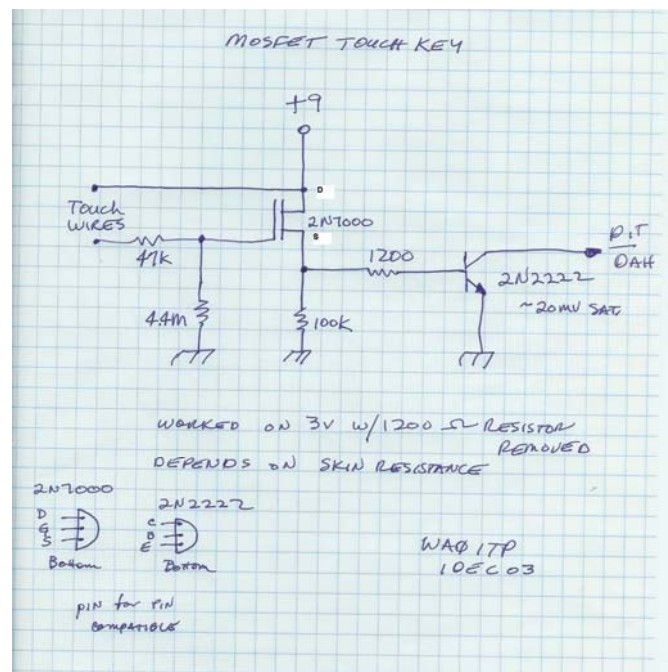 MOSFET TOUCH KEY
+9
D
Touch
WIRES
2N7000
S
47K
1200
DIT
DAH
2N2222
~20mV SAT.
4.4M
100K
WORKED ON 3V W/1200 Ω RESISTOR
REMOVED
DEPENDS ON SKIN RESISTANCE
2N7000
D
G
S
Bottom
2N2222
C
B
E
Bottom
PIN for PIN
COMPATIBLE
WAØITP
1DEC03